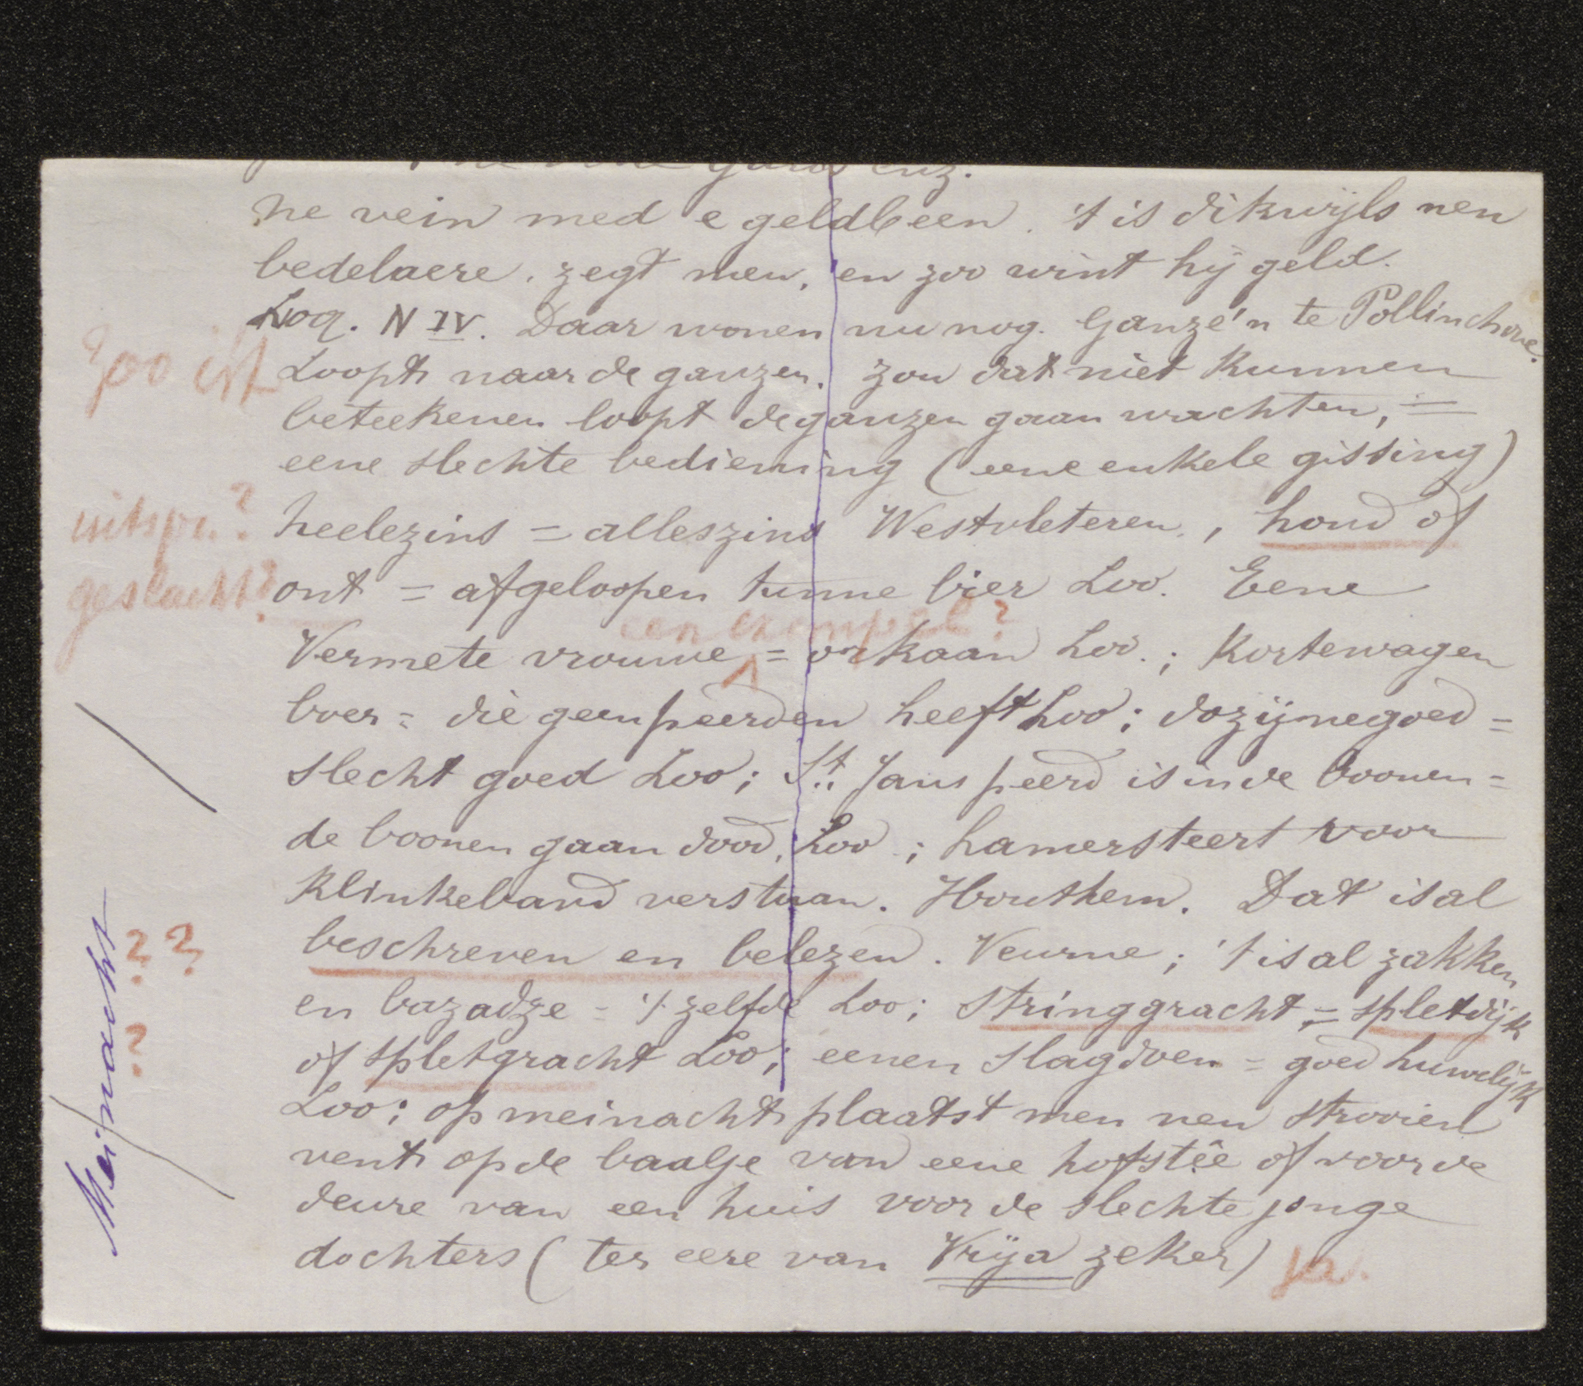 enz.
ne vein med e geldbeen. 't is dikwijls nen
bedelaere, zegt men, en zoo wint hij geld.
Loq. N IV. Daar wonen nu nog Ganze'n te Pollinchove.
Zoo ist
Loopt naar de ganzen. zou dat niet kunnen
beteekenen loopt de ganzen gaan wachten, =
eene slechte bediening (eene enkele gissing)
uitspr.?
heelezins = alleszins Westvleteren, hond of
geslacht?
ont = afgeloopen tunne bier Loo. Eene
een exempel?
Vermete vrouwe = orkaan Loo.; Kortewagen
boer = die geen peerden heeft Loo; dozijnegoed =
slecht goed Loo; St. Jans peerd is in de boonen =
de boonen gaan dood, Loo; hamersteert voor
klinkeband verstaan. Houthem. Dat is al
beschreven en belezen. Veurne; 't is al zakken
? ?
en bazadze = 't zelfde Loo; Stringgracht = spletdijk
?
of spletgracht Loo; eenen slag doen = goed huwelijk
Loo; op meinacht plaatst men nen strooien
vent op de baalje van eene hofstêe of voor de
deure van een huis voor de slechte jonge
dochters (ter eere van Vrija zeker) ja.
Meinacht